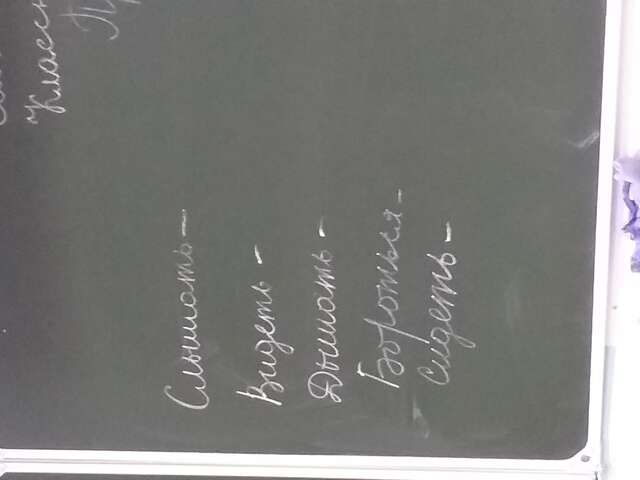 Классн
Слышать –
Видеть –
Дышать –
Бороться –
Сидеть –